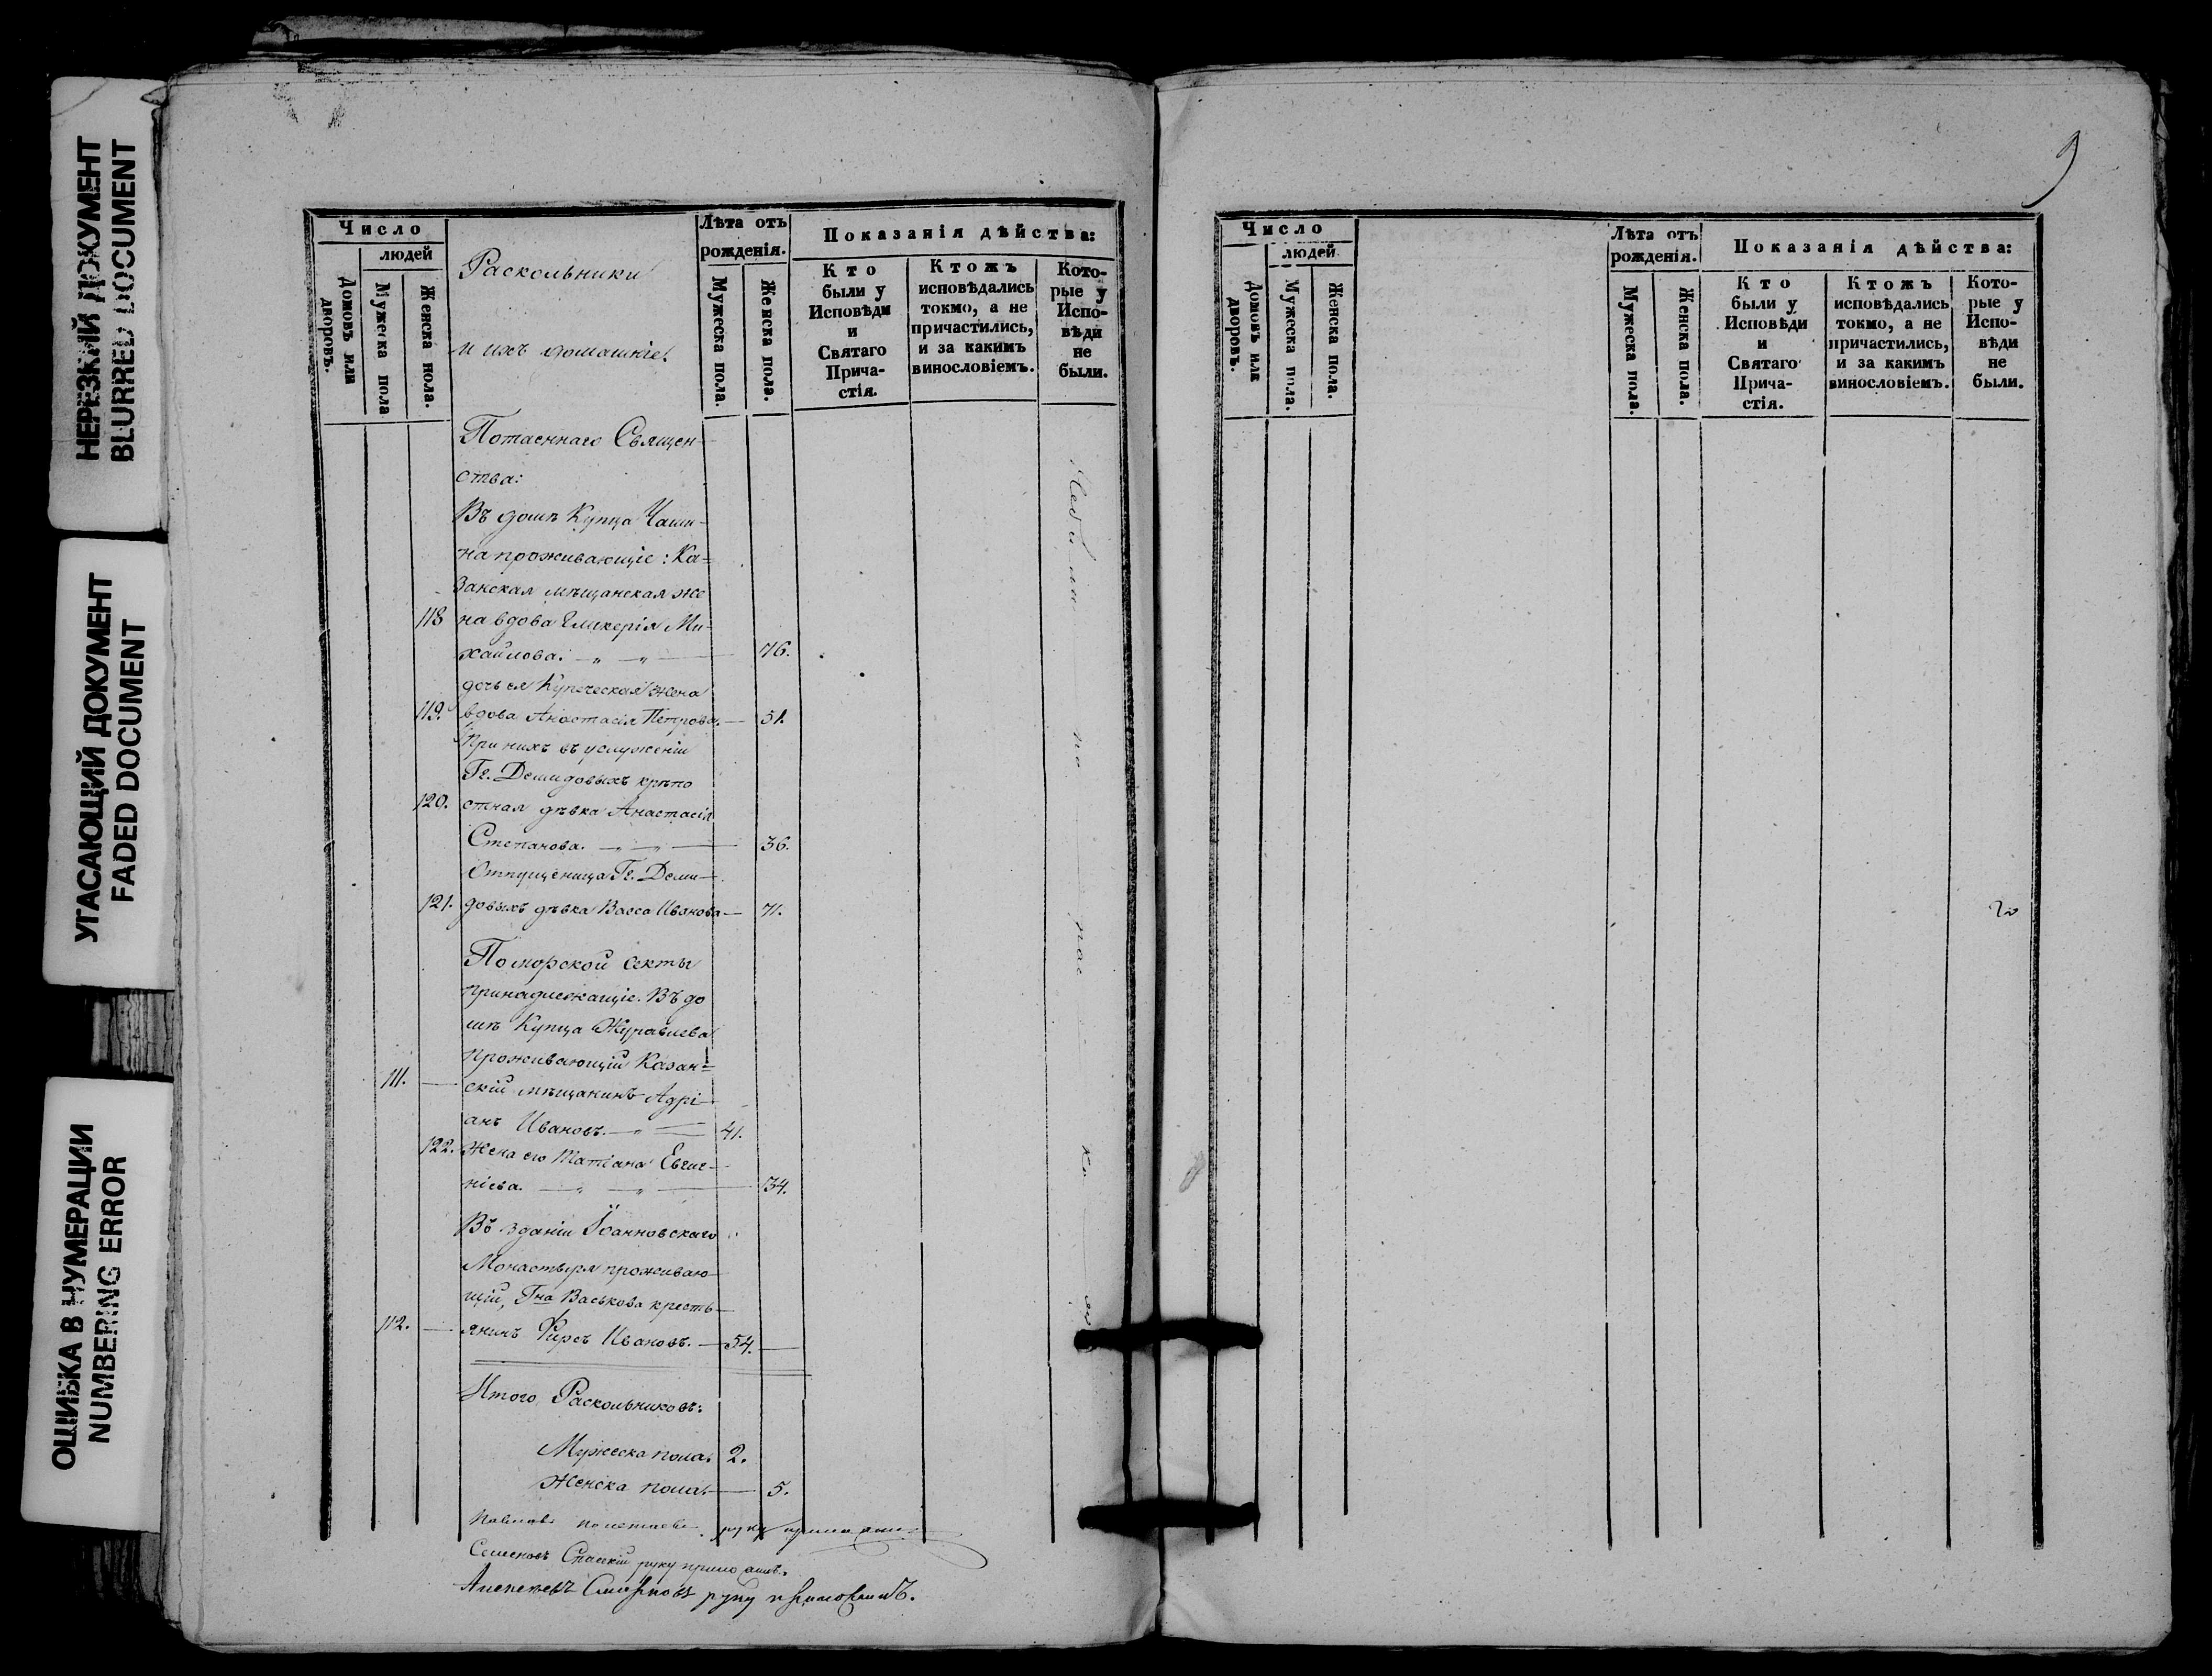 НЕРЕЗКИЙ ДОКУМЕНТ
BLURRED DOCUMENT
УГАСАЮЩИЙ ДОКУМЕНТ
FADED DOCUMENT
ОШИБКА В НУМЕРАЦИИ
NUMBERING ERROR
Число
людей
Домовъ или дворовъ.
Мужеска пола
Женска пола.
Раскольники
и ихъ домашніе.
Лѣта отъ
рожденія.
Мужеска пола.
Женска пола.
Показанія дѣйства:
Кто
были у
Исповѣди
и
Святаго
Прича-
стія.
Ктожъ
исповѣдались
токмо, а не
причастились,
и за какимъ
винословіемъ.
Кото-
рые у
Испо-
вѣди
не
были.
Потаеннаго Священ-
ства:
Въ домѣ Купца Чаши-
на проживающіе: Ка=
занская мѣщанская же
118 на вдова Гликерія Ми-
хайлова. 76.
дочь ея Купеческая жена
119. вдова Анастасія Петрова. 51.
При нихъ въ услуженіи
Гг. Демидовыхъ крѣпо
120. стная дѣвка Анастасія
Степанова. 36.
Отпущеница Гг. Деми-
121. довыхъ дѣвка Васса Иванова 71.
Поморской секты
принадлежащіе. Въ до
мѣ Купца Журавлева
проживающій Казан=
111. скій мѣщанинъ Адрі-
анъ Ивановъ. 41.
122. Жена его Татіана Евгиг-
ніева. 34.
Въ зданіи Іоанновскаго
Монастыря проживаю-
щій, Гна Васькова кресть-
112. янинъ Фирсъ Ивановъ. 54.
Итого Раскольниковъ:
Мужеска пола. 2.
Женска пола. 5.
руку приложилъ
Семеновъ Спасскій руку приложилъ.
Алексѣевъ Смирновъ руку приложилъ.
Не были по рас ко
9
Число
людей
Домовъ или дворовъ.
Мужеска пола.
Женска пола.
Лѣта отъ
рожденія.
Мужеска пола.
Женска пола.
Показанія дѣйства:
Кто
были у
Исповѣди
и
Святаго
Прича-
стія.
Ктожъ
исповѣдались
токмо, а не
причастились,
и за какимъ
винословіемъ.
Кото-
рые у
Испо-
вѣди
не
были.